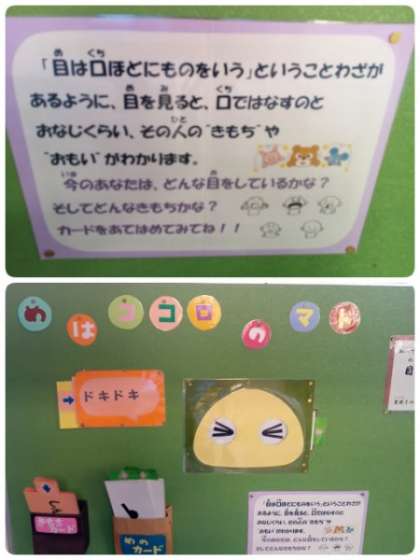 「目は口ほどにものをいう」ということわざが
あるように、目を見ると、口ではなすのと
おなじくらい、その人の"きもち"や
"おもい"がわかります。
今のあなたは、どんな目をしているかな?
そしてどんなきもちかな?
カードをあてはめてみてね!!
めはココロのマド
ドキドキ
めの
カード
カード
「目は口ほどにものをいう」ということわざが
あるように、目を見ると、口ではなすのと
おなじくらい、その人の"きもち"や
"おもい"がわかります。